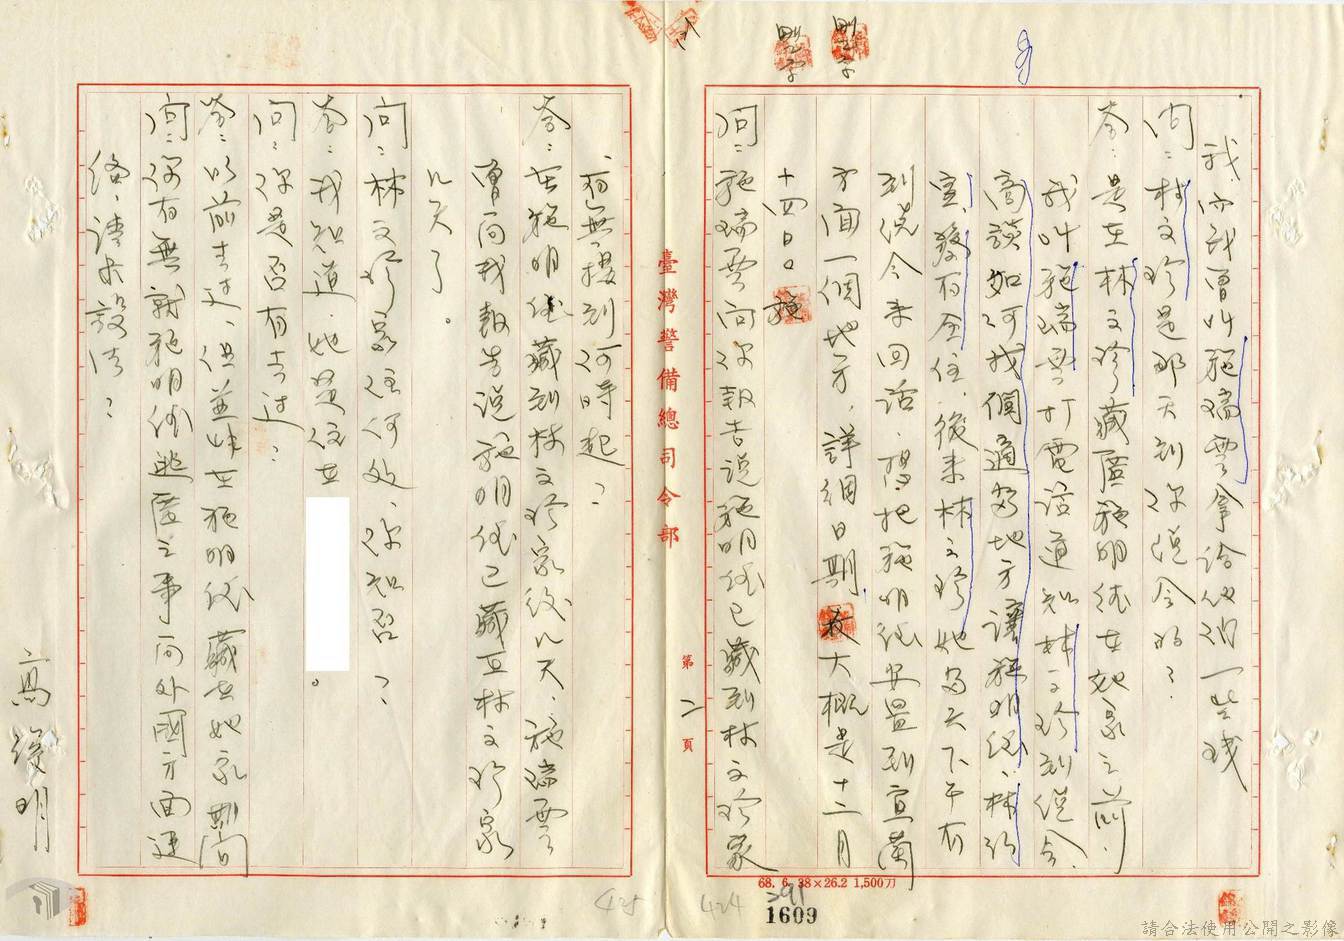 我,而我曾叫施瑞雲拿給他們一些錢
問:林文珍是那天到你總會的?
答:是在林文珍藏匿施明德在她家之前,
我叫施瑞雲打電話通知林文珍到總會,
商談如何找個適當地方讓施明德、林
到總會來回話,想把施明德安置到宜蘭
方面一個地方,詳細日期大概是十二月
十四日。施
問:施瑞雲向你報告說施明德已藏到林文珍家
有無提到何時起?
答:在施明德藏到林文珍家後幾天,施瑞雲
曾向我報告說施明德已藏在林文珍家
幾天了。
問:林文珍家住何處,你知否?
答:我知道,她是住在
。
問:你是否有去過?
答:以前去過,但並非在施明德藏在她家期間
問:你有無就施明德逃匿之事向外國方面連
絡,請求設法?
高俊明
臺灣警備總司令部
第二頁
68. 6. 38×26.2 1,500刀
391
1609
424
425
請合法使用公開之影像